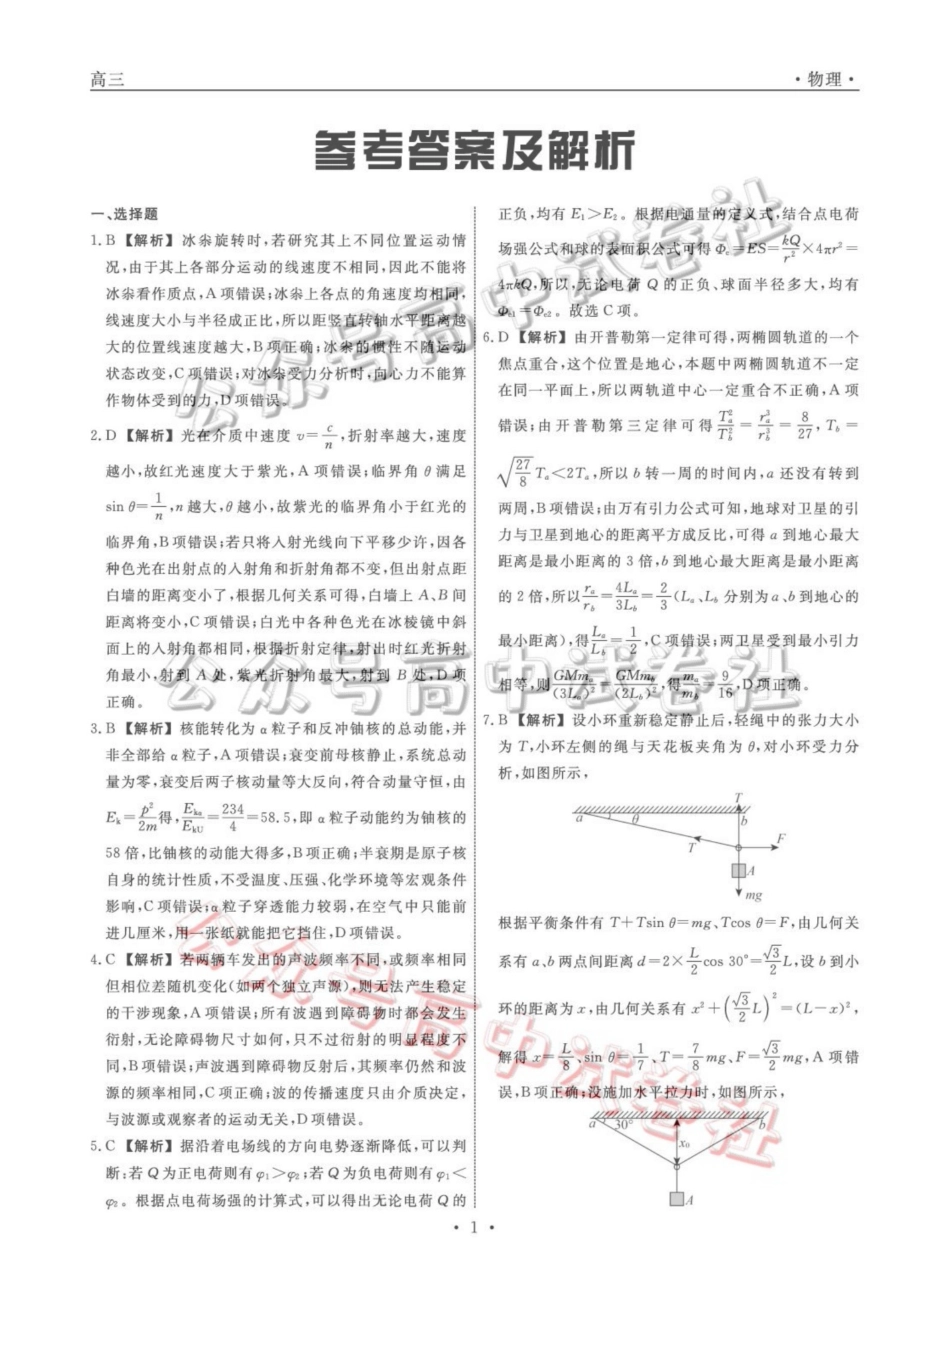 高三
·物理·
参考答案及解析
一、选择题
1. B 【解析】冰尜旋转时,若研究其上不同位置运动情
况,由于其上各部分运动的线速度不相同,因此不能将
冰尜看作质点,A 项错误;冰尜上各点的角速度均相同,
线速度大小与半径成正比,所以距竖直转轴水平距离越
大的位置线速度越大,B 项正确;冰尜的惯性不随运动
状态改变,C 项错误;对冰尜受力分析时,向心力不能算
作物体受到的力,D 项错误。
2. D 【解析】光在介质中速度 v=c/n,折射率越大,速度
越小,故红光速度大于紫光,A 项错误;临界角 θ 满足
sin θ=1/n,n 越大,θ 越小,故紫光的临界角小于红光的
临界角,B 项错误;若只将入射光线向下平移少许,因各
种色光在出射点的入射角和折射角都不变,但出射点距
白墙的距离变小了,根据几何关系可得,白墙上 A、B 间
距离将变小,C 项错误;白光中各种色光在冰棱镜中斜
面上的入射角都相同,根据折射定律,射出时红光折射
角最小,射到 A 处,紫光折射角最大,射到 B 处,D 项
正确。
3. B 【解析】核能转化为 α 粒子和反冲钍核的总动能,并
非全部给 α 粒子,A 项错误;衰变前母核静止,系统总动
量为零,衰变后两子核动量等大反向,符合动量守恒,由
Eₖ=p²/2m得,Eₖα/EₖU=234/4=58.5,即 α 粒子动能约为钍核的
58 倍,比铀核的动能大得多,B 项正确;半衰期是原子核
自身的统计性质,不受温度、压强、化学环境等宏观条件
影响,C 项错误;α 粒子穿透能力较弱,在空气中只能前
进几厘米,用一张纸就能把它挡住,D 项错误。
4. C 【解析】若两辆车发出的声波频率不同,或频率相同
但相位差随机变化(如两个独立声源),则无法产生稳定
的干涉现象,A 项错误;所有波遇到障碍物时都会发生
衍射,无论障碍物尺寸如何,只不过衍射的明显程度不
同,B 项错误;声波遇到障碍物反射后,其频率仍然和波
源的频率相同,C 项正确;波的传播速度只由介质决定,
与波源或观察者的运动无关,D 项错误。
5. C 【解析】据沿着电场线的方向电势逐渐降低,可以判
断:若 Q 为正电荷则有 φ₁>φ₂;若 Q 为负电荷则有 φ₁<
φ₂。根据点电荷场强的计算式,可以得出无论电荷 Q 的
正负,均有 E₁>E₂。根据电通量的定义式,结合点电荷
场强公式和球的表面积公式可得 Φₑ=ES=kQ/r²×4πr²=
4πkQ,所以,无论电荷 Q 的正负、球面半径多大,均有
Φₑ₁=Φₑ₂。故选 C 项。
6. D 【解析】由开普勒第一定律可得,两椭圆轨道的一个
焦点重合,这个位置是地心,本题中两椭圆轨道不一定
在同一平面上,所以两轨道中心一定重合不正确,A 项
错误;由开普勒第三定律可得Tₐ²/T_b²=rₐ³/r_b³=8/27,T_b=
√(27/8)Tₐ<2Tₐ,所以 b 转一周的时间内,a 还没有转到
两周,B 项错误;由万有引力公式可知,地球对卫星的引
力与卫星到地心的距离平方成反比,可得 a 到地心最大
距离是最小距离的 3 倍,b 到地心最大距离是最小距离
的 2 倍,所以rₐ/r_b=4Lₐ/3L_b=2/3(Lₐ、L_b 分别为 a、b 到地心的
最小距离),得Lₐ/L_b=1/2,C 项错误;两卫星受到最小引力
相等,则GMmₐ/(3Lₐ)²=GMm_b/(2L_b)²,得mₐ/m_b=9/16,D 项正确。
7. B 【解析】设小环重新稳定静止后,轻绳中的张力大小
为 T,小环左侧的绳与天花板夹角为 θ,对小环受力分
析,如图所示,
T
a θ b
T F
A
mg
根据平衡条件有 T+Tsin θ=mg、Tcos θ=F,由几何关
系有 a、b 两点间距离 d=2×L/2cos 30°=√3/2L,设 b 到小
环的距离为 x,由几何关系有 x²+(√3/2L)²=(L-x)²,
解得 x=L/8、sin θ=1/7、T=7/8mg、F=√3/2mg,A 项错
误,B 项正确;没施加水平拉力时,如图所示,
a 30° b
x₀
A
·1·
公众号高中试卷社
公众号高中试卷社
公众号高中试卷社